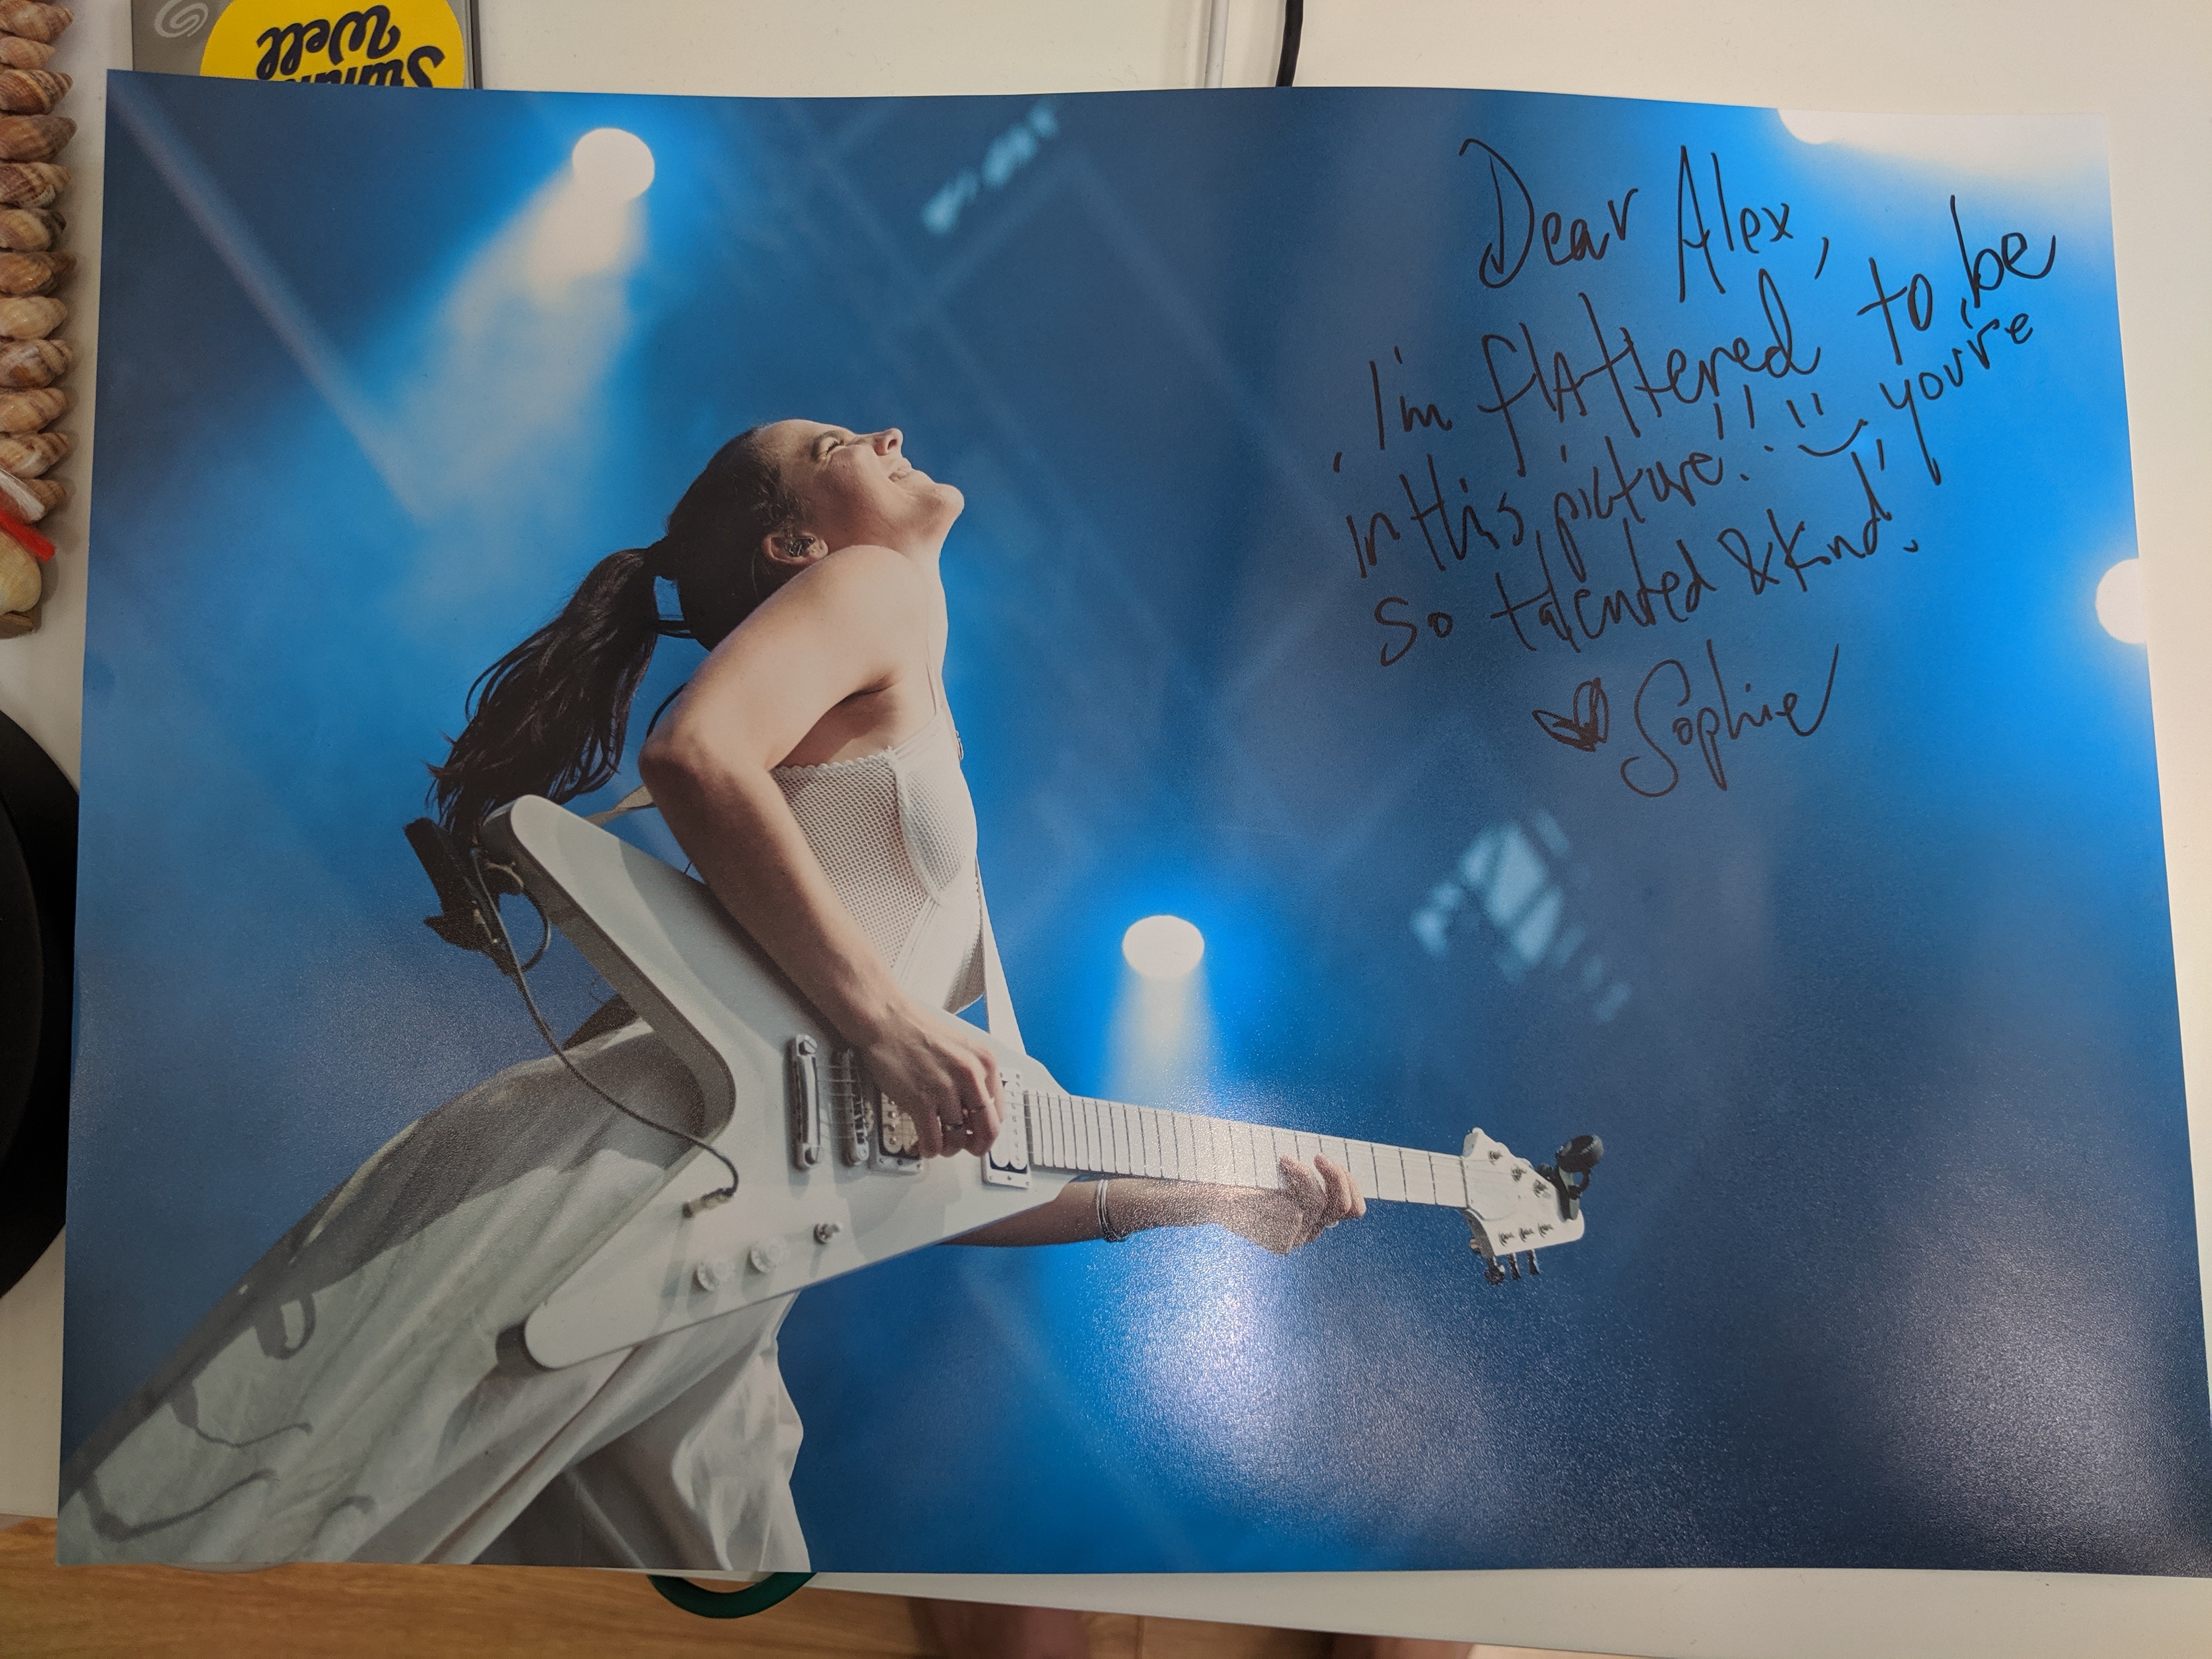 Well
Dear Alex,
I'm flattered to be
in this picture!!! :) , you're
so talented & kind.
♥ Sophie